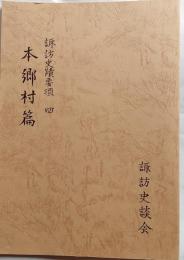 諏訪史蹟要項 四
本郷村篇
諏訪史談会